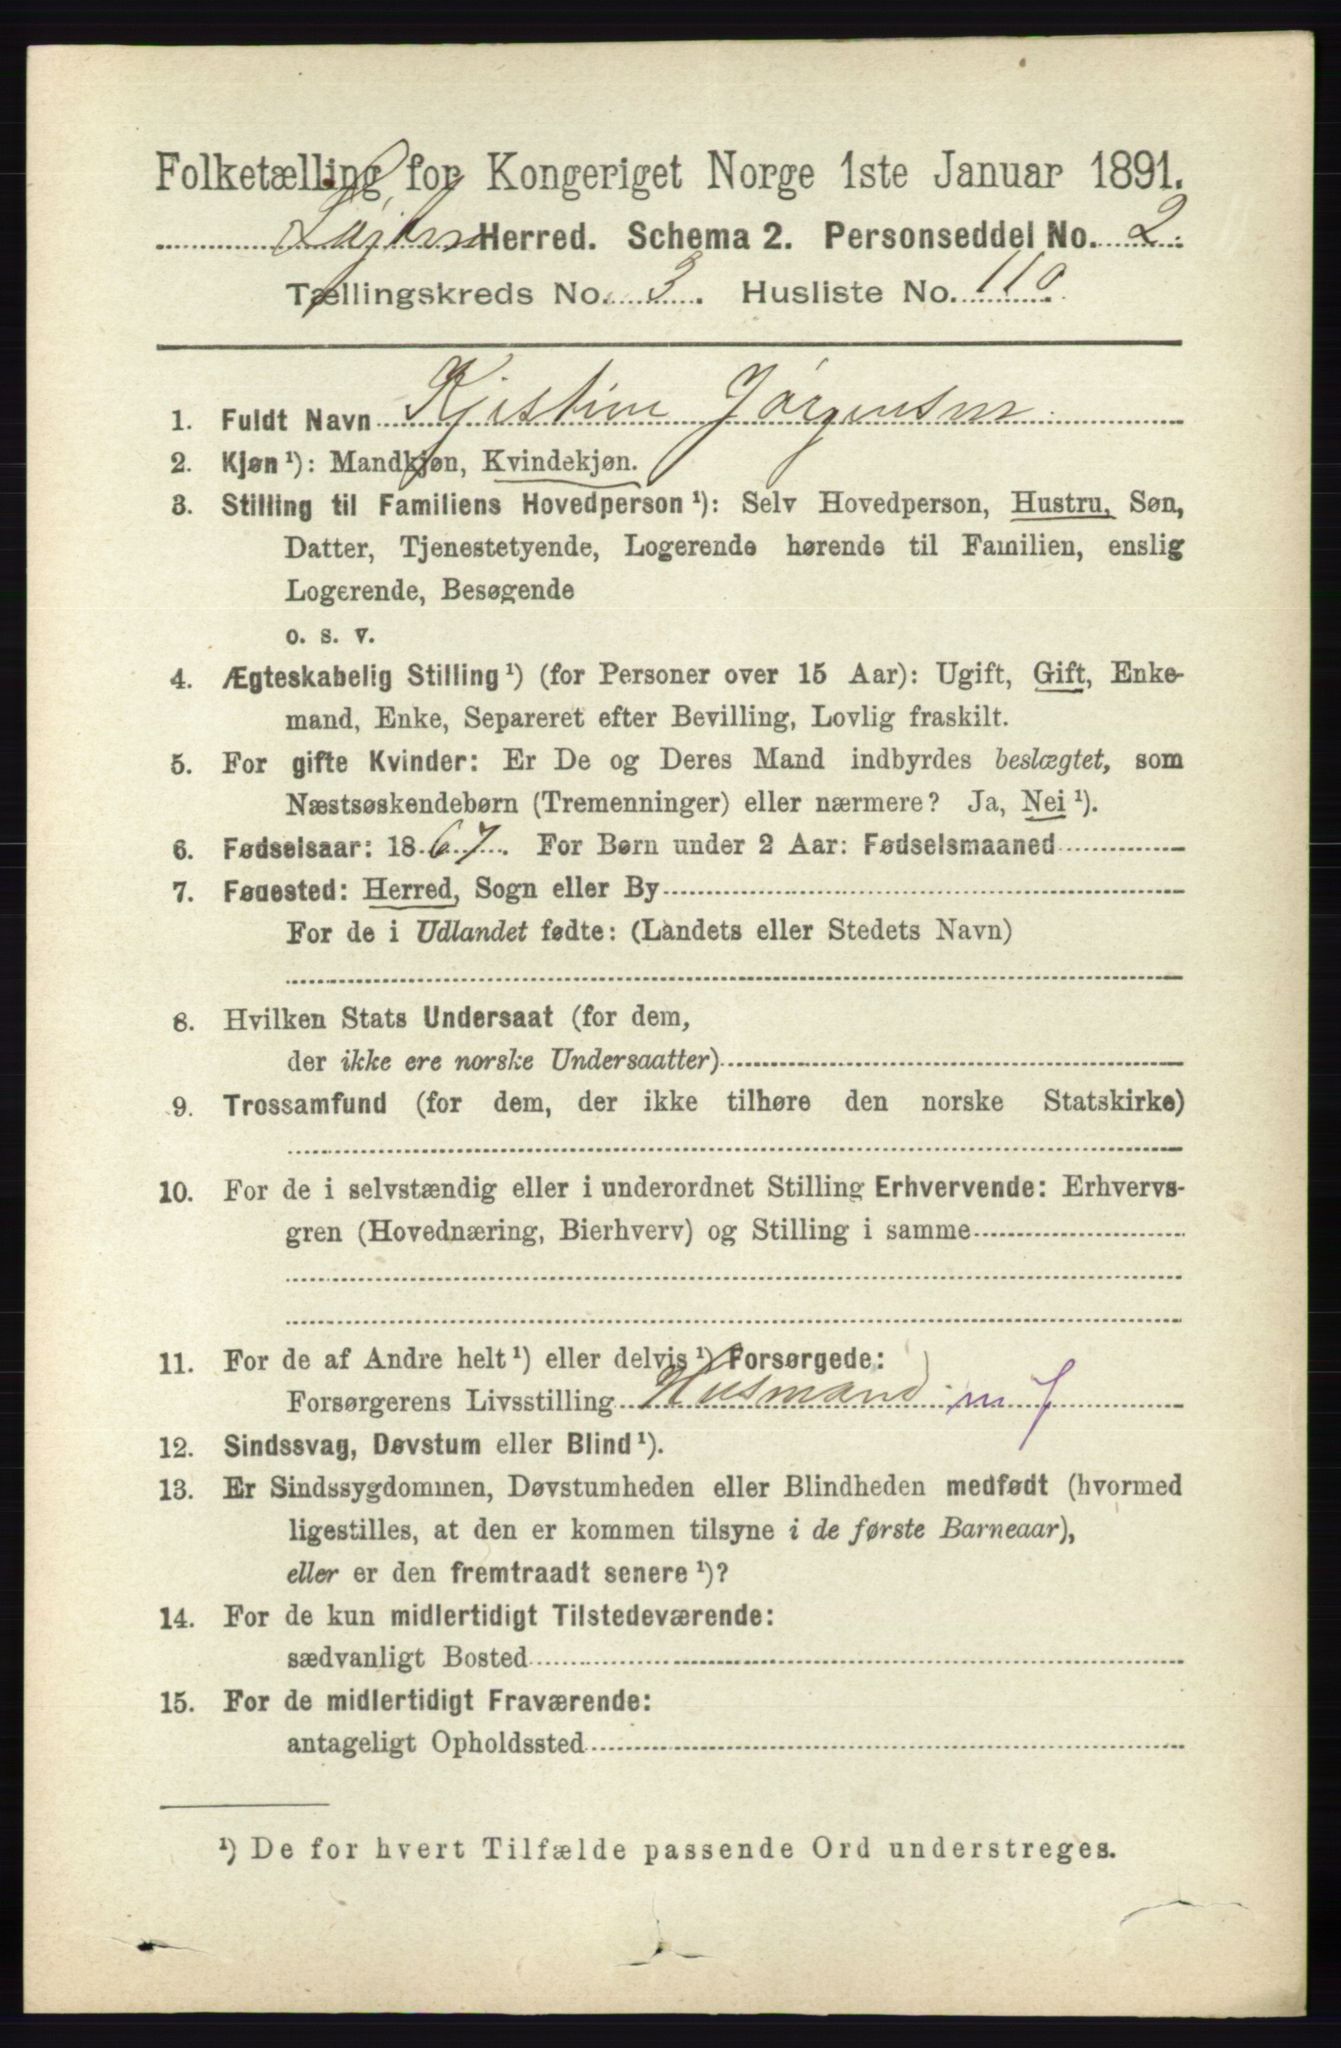 Folketælling for Kongeriget Norge 1ste Januar 1891.
Herred. Schema 2. Personseddel No. 2.
Tællingskreds No. 3. Husliste No. 110.
1. Fuldt Navn Kjestine Jørgensen
2. Kjøn¹): Mandkjøn, Kvindekjøn.
3. Stilling til Familiens Hovedperson¹): Selv Hovedperson, Hustru, Søn,
Datter, Tjenestetyende, Logerende hørende til Familien, enslig
Logerende, Besøgende
o. s. v.
4. Ægteskabelig Stilling¹) (for Personer over 15 Aar): Ugift, Gift, Enke-
mand, Enke, Separeret efter Bevilling, Lovlig fraskilt.
5. For gifte Kvinder: Er De og Deres Mand indbyrdes beslægtet, som
Næstsøskendebørn (Tremenninger) eller nærmere? Ja, Nei¹).
6. Fødselsaar: 1867. For Børn under 2 Aar: Fødselsmaaned
7. Fødested: Herred, Sogn eller By
For de i Udlandet fødte: (Landets eller Stedets Navn)
8. Hvilken Stats Undersaat (for dem,
der ikke ere norske Undersaatter)
9. Trossamfund (for dem, der ikke tilhøre den norske Statskirke)
10. For de i selvstændig eller i underordnet Stilling Erhvervende: Erhvervs-
gren (Hovednæring, Bierhverv) og Stilling i samme
11. For de af Andre helt¹) eller delvis¹) Forsørgede:
Forsørgerens Livsstilling Husmand m j
12. Sindssvag, Døvstum eller Blind¹).
13. Er Sindssygdommen, Døvstumheden eller Blindheden medfødt (hvormed
ligestilles, at den er kommen tilsyne i de første Barneaar),
eller er den fremtraadt senere¹)?
14. For de kun midlertidigt Tilstedeværende:
sædvanligt Bosted
15. For de midlertidigt Fraværende:
antageligt Opholdssted
¹) De for hvert Tilfælde passende Ord understreges.